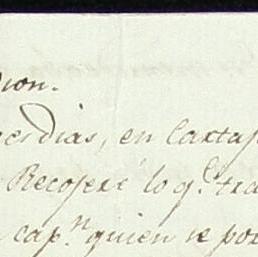 ion.
es dias, en Carta
Recojere lo q.e tra
cap.n quien se por